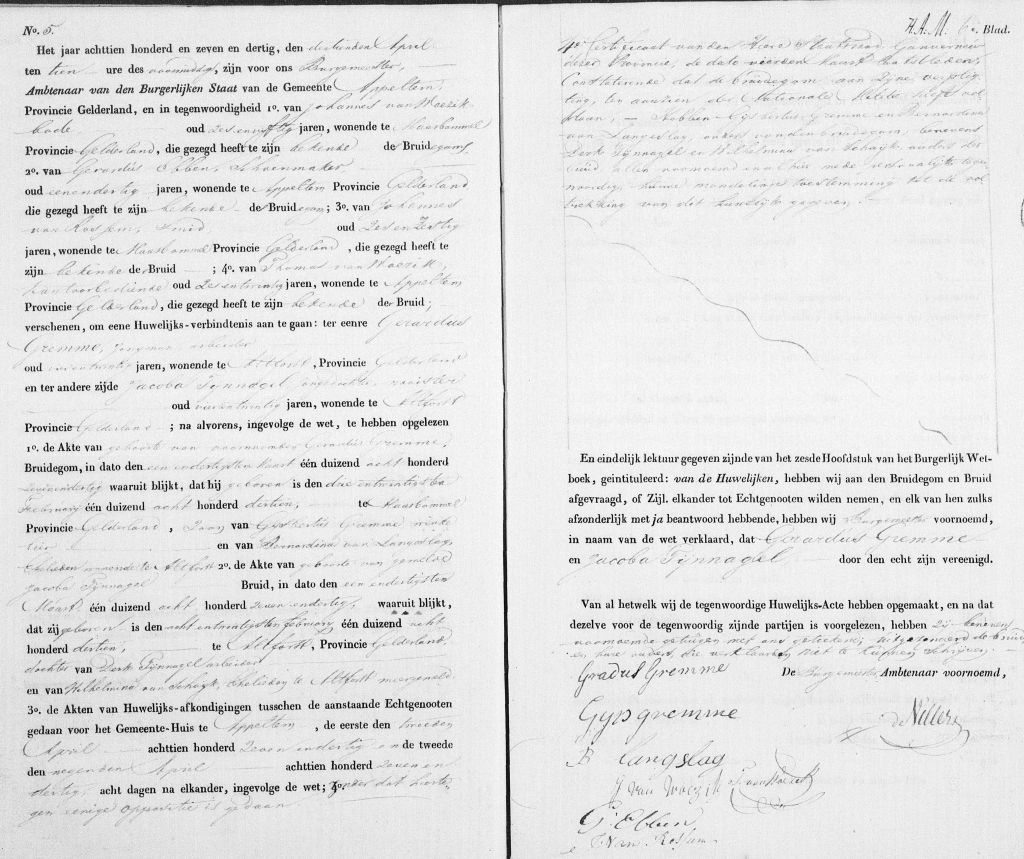 No. 5.
Het jaar achttien honderd en zeven en dertig, den dertienden April
ten tien ure des voormiddag, zijn voor ons Burgemeester,
Ambtenaar van den Burgerlijken Staat van de Gemeente Appeltern,
Provincie Gelderland, en in tegenwoordigheid 1o. van Johannes van Woezik
bode oud zes en vijftig jaren, wonende te Maasbommel
Provincie Gelderland, die gezegd heeft te zijn bekende de Bruidegoms
2o. van Gerardus Ebben, Schoenmaker,
oud eenendertig jaren, wonende te Appeltern Provincie Gelderland
die gezegd heeft te zijn bekende de Bruidegom; 3o. van Johannes
van Rossem, smid, oud Zes en Zestig
jaren, wonende te Maasbommel Provincie Gelderland, die gezegd heeft te
zijn bekende de Bruid ; 4o. van Thomas van Woezik,
kantoorbediende oud Zes en twintig jaren, wonende te Appeltern
Provincie Gelderland, die gezegd heeft te zijn bekende de Bruid;
verschenen, om eene Huwelijks-verbindtenis aan te gaan: ter eenre Gerardus
Gremme, jongman arbeider
oud vierentwintig jaren, wonende te Altforst, Provincie Gelderland
en ter andere zijde Jacoba Tijnnagel ongehuwde
oud vierentwintig jaren, wonende te Altforst
Provincie Gelderland ; na alvorens, ingevolge de wet, te hebben opgelezen
1o. de Akte van geboorte van voornoemden Gerardus Gremme,
Bruidegom, in dato den een endertigsten Maart één duizend acht honderd
zevenendertig waaruit blijkt, dat hij geboren is den drie entwintigste
Februarij één duizend acht honderd dertien, te Maasbommel
Provincie Gelderland, Zoon van Gijsbertus Gremme
en van Bernardina van Langeslag,
Ehelieden wonende te Altforst 2o. de Akte van geboorte van gemelde
Jacoba Tijnnagel Bruid, in dato den een endertigsten
Maart één duizend acht honderd zeven endertig, waaruit blijkt,
dat zij geboren is den acht entwintigsten februarij één duizend acht
honderd dertien, te Altforst, Provincie Gelderland,
dochter van Derk Tijnnagel arbeider
en van Wilhelmina van Schaijk, Ehelieden te Altforst meergemeld
3o. de Akten van Huwelijks-afkondigingen tusschen de aanstaande Echtgenooten
gedaan voor het Gemeente-Huis te Appeltern, de eerste den tweeden
April achttien honderd Zeven endertig en de tweede
den negenden April achttien honderd Zeven en
dertig, acht dagen na elkander, ingevolge de wet; zonder dat hierte-
gen eenige oppositie is gedaan
H.A.M. 6e. Blad.
4o Certificaat van den Heere Staatsraad Gouverneur
dezer Provincie, de dato vierden Maart
Constaterende dat de bruidegom aan zijne verplig-
ting, ten aanzien der Nationale Militie heeft vol-
daan, Hebben Gijsbertus Gremme en Bernardina
van Langeslag, ouders van den bruidegom, benevens
Derk Tijnnagel en Wilhelmina van Schaijk, ouders der
bruid, allen voornoemd en alhier mede persoonlijk tegen-
woordig, hunne mondelinge toestemming tot de vol-
trekking van dit huwelijk gegeven.
En eindelijk lektuur gegeven zijnde van het zesde Hoofdstuk van het Burgerlijk Wet-
boek, geintituleerd: van de Huwelijken, hebben wij aan den Bruidegom en Bruid
afgevraagd, of Zijl. elkander tot Echtgenooten wilden nemen, en elk van hen zulks
afzonderlijk met ja beantwoord hebbende, hebben wij Burgemeester voornoemd,
in naam van de wet verklaard, dat Gerardus Gremme
en Jacoba Tijnnagel door den echt zijn vereenigd.
Van al hetwelk wij de tegenwoordige Huwelijks-Acte hebben opgemaakt, en na dat
dezelve voor de tegenwoordig zijnde partijen is voorgelezen, hebben zij benevens
voornoemde getuigen met ons geteekend; uitgezonderd de bruid
en hare ouders, die verklaarden niet te kunnen schrijven.
Gradus Gremme
De Burgemeester Ambtenaar voornoemd,
Gijs gremme
de Villers
B Langslag
J van Woezik
T. van Woezik
G. Ebben
J Van Rossum